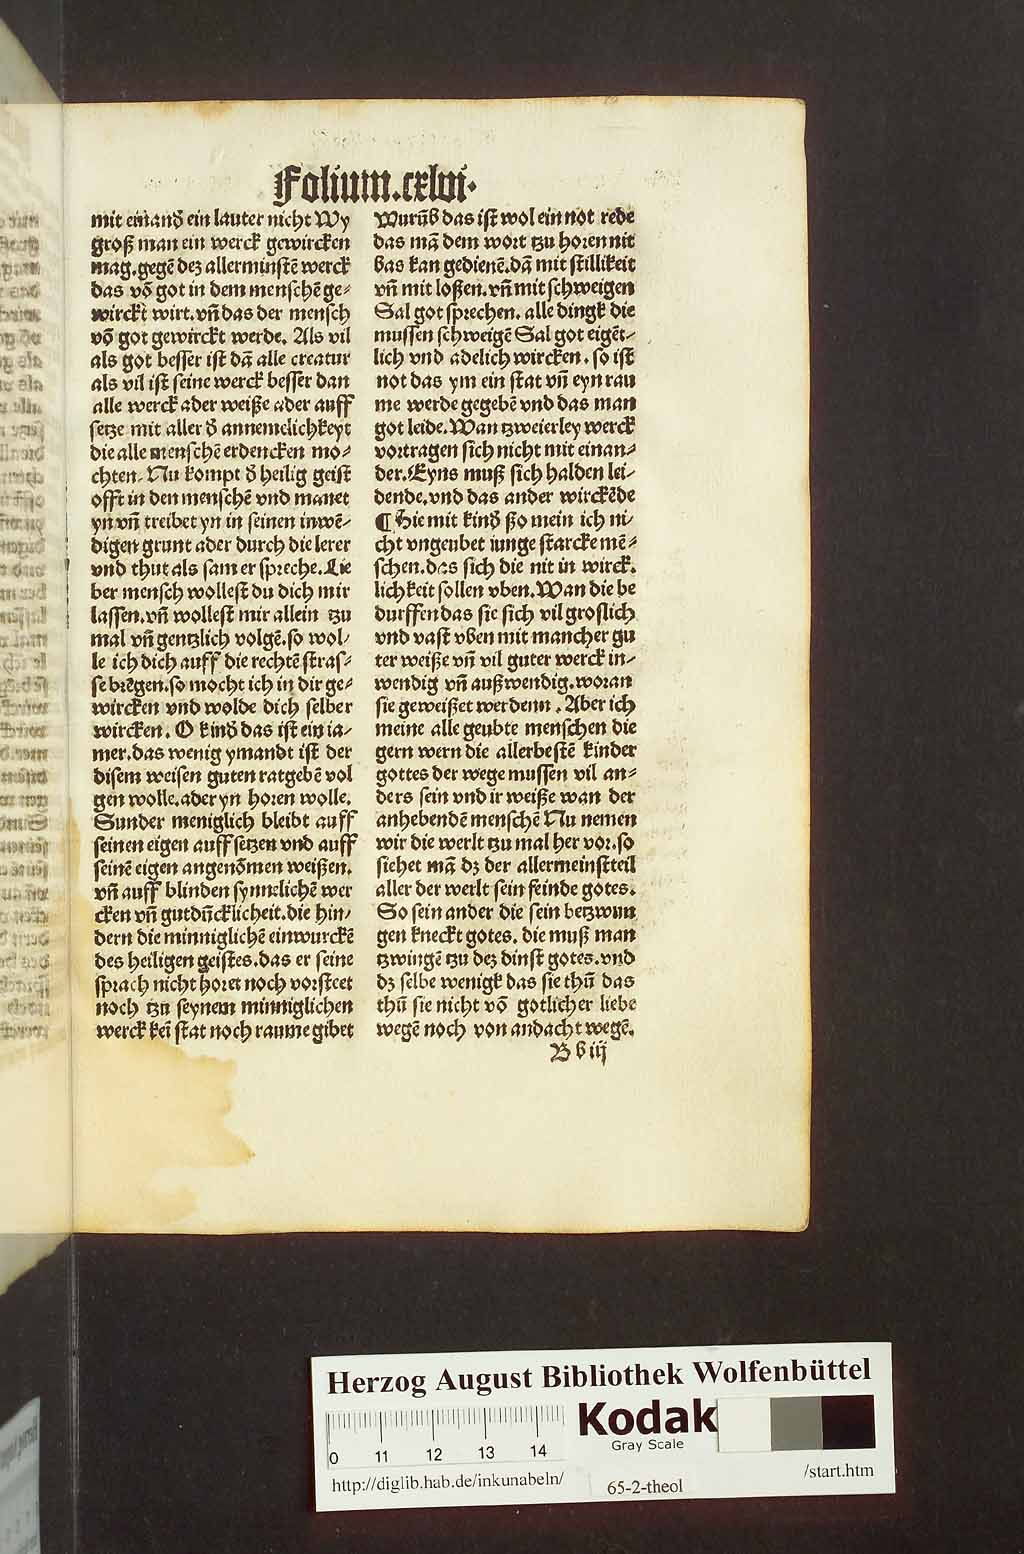 Folium.cxlvi.
mit einand̾ ein lauter nicht Wy
groß man ein werck gewircken
mag.gegē dez allerminstē werck
das vō got in dem menschē ge⸗
wirckt wirt.vn̄ das der mensch
vō got gewirckt werde. Als vil
als got besser ist dā alle creatur
als vil ist seine werck besser dan
alle werck ader weiße ader auff
setze mit aller d̾ annemlichkeyt
die alle menschē erdencken mo⸗
chten. Nu kompt d̾ heilig geist
offt in den menschē vnd manet
yn vn̄ treibet yn in seinen inwē⸗
digen grunt ader durch die lerer
vnd thut als sam er spreche. Lie
ber mensch wollest du dich mir
lassen.vn̄ wollest mir allein tzu
mal vn̄ gentzlich volgē.so wol⸗
le ich dich auff die rechtē stras⸗
se brēgen.so mocht ich in dir ge⸗
wircken vnd wolde dich selber
wircken. O kind̾ das ist ein ia⸗
mer.das wenig ymandt ist der
disem weisen guten ratgebē vol
gen wolle.ader yn horen wolle.
Sunder meniglich bleibt auff
seinen eigen auff setzen vnd auff
seinē eigen angenōmen weißen.
vn̄ auff blinden synnelichē wer
cken vn̄ gutdūcklicheit.die hin⸗
dern die minniglichē einwurckē
des heiligen geistes.das er seine
sprach nicht horet noch vorsteet
noch tzu seynem minniglichen
werck kei stat noch raume gibet
Wurūb das ist wol ein not rede
das mā dem wort tzu horen nit
bas kan gedienē.dā mit stillikeit
vn̄ mit loßen.vn̄ mit schweigen
Sal got sprechen. alle dingk die
mussen schweigē Sal got eigēt⸗
lich vnd adelich wircken. so ist
not das ym ein stat vn̄ eyn rau
me werde gegebē vnd das man
got leide. Wan tzweierley werck
vortragen sich nicht mit einan⸗
der. Eyns muß sich halden lei⸗
dende.vnd das ander wirckēde
¶ Hie mit kind̾ ßo mein ich ni⸗
cht vngeubet iunge starcke mē⸗
schen.das sich die nit in wirck.
lichkeit sollen vben. Wan die be
durffen das sie sich vil groslich
vnd vast vben mit mancher gu
ter weiße vn̄ vil guter werck in⸗
wendig vn̄ außwendig.woran
sie geweißet werdenn. Aber ich
meine alle geubte menschen die
gern wern die allerbestē kinder
gottes der wege mussen vil an⸗
ders sein vnd ir weiße wan der
anhebendē menschē Nu nemen
wir die werlt tzu mal her vor.so
siehet mā dz der allermeinstteil
aller der werlt sein feinde gotes.
So sein ander die sein betzwun
gen kneckt gotes. die muß man
tzwingē tzu dez dinst gotes.vnd
dz selbe wenigk das sie thū das
thū sie nicht vō gotlicher liebe
wegē noch von andacht wegē.
B b iij
Herzog August Bibliothek Wolfenbüttel
0 11 12 13 14
Kodak
Gray Scale
http://diglib.hab.de/inkunabeln/
65-2-theol
/start.htm